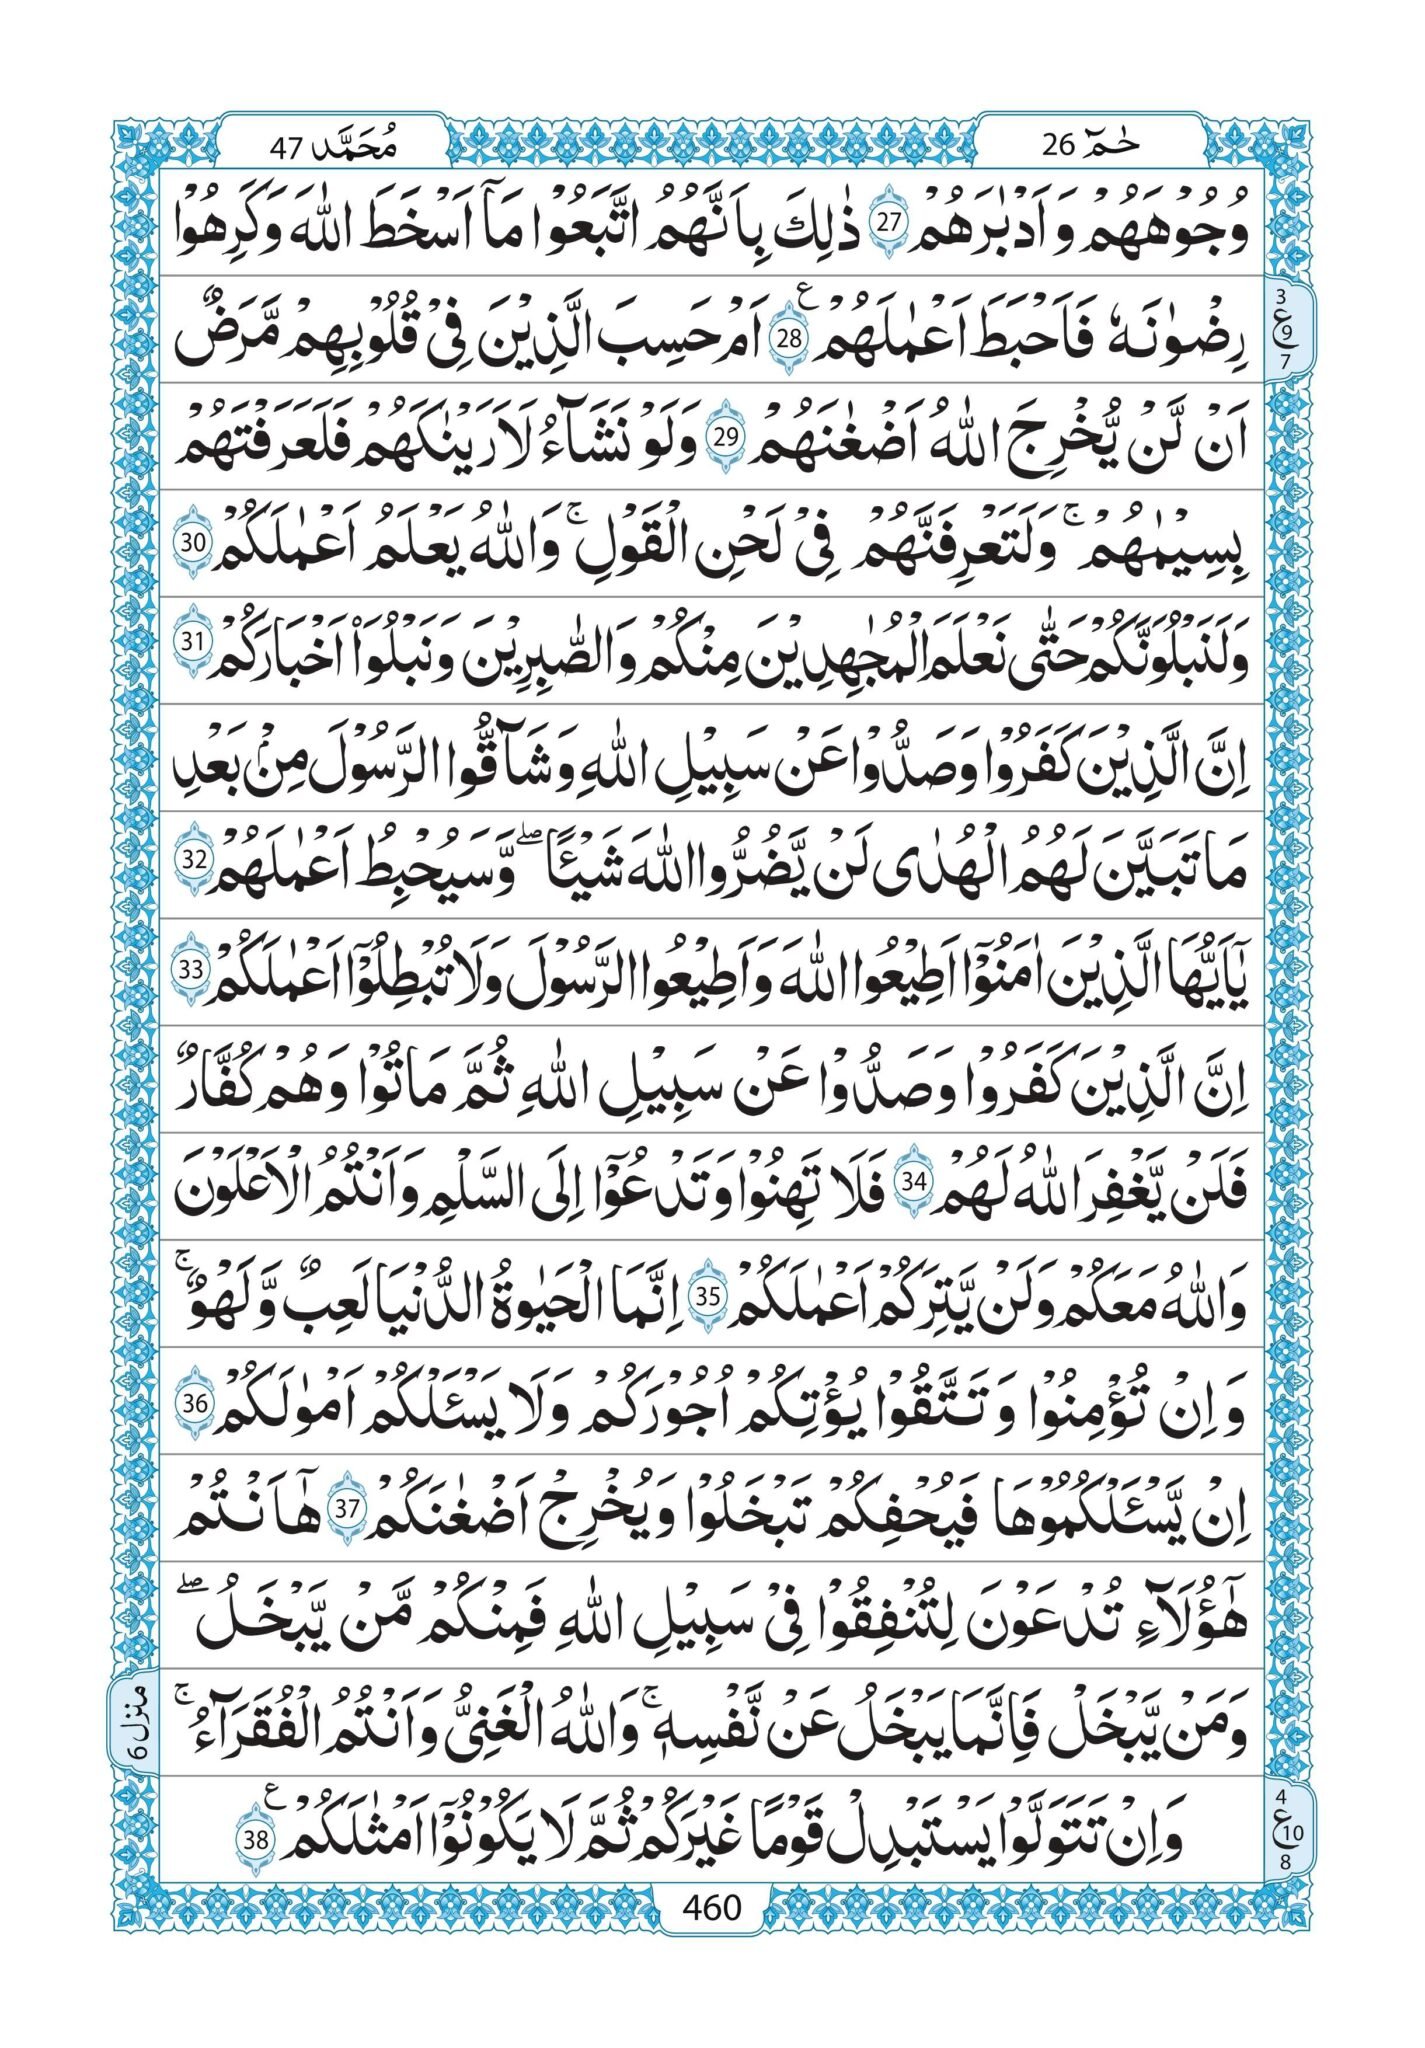 حٰمٓ 26
مُحَمَّد 47
وُجُوْهَهُمْ وَ اَدْبٰرَهُمْ 27 ذٰلِكَ بِاَنَّهُمُ اتَّبَعُوْا مَاۤ اَسْخَطَ اللّٰهَ وَ كَرِهُوْا
رِضْوٰنَهٗ فَاَحْبَطَ اَعْمٰلَهُمْ 28 ع اَمْ حَسِبَ الَّذِيْنَ فِيْ قُلُوْبِهِمْ مَّرَضٌ
3 ع 9 7
اَنْ لَّنْ يُّخْرِجَ اللّٰهُ اَضْغٰنَهُمْ 29 وَلَوْ نَشَآءُ لَاَرَيْنٰكَهُمْ فَلَعَرَفْتَهُمْ
بِسِيْمٰهُمْ ۚ وَلَتَعْرِفَنَّهُمْ فِيْ لَحْنِ الْقَوْلِ ۚ وَاللّٰهُ يَعْلَمُ اَعْمٰلَكُمْ 30
وَلَنَبْلُوَنَّكُمْ حَتّٰى نَعْلَمَ الْمُجٰهِدِيْنَ مِنْكُمْ وَالصّٰبِرِيْنَ وَنَبْلُوَا۟ اَخْبَارَكُمْ 31
اِنَّ الَّذِيْنَ كَفَرُوْا وَ صَدُّوْا عَنْ سَبِيْلِ اللّٰهِ وَ شَآقُّوا الرَّسُوْلَ مِنْۢ بَعْدِ
مَا تَبَيَّنَ لَهُمُ الْهُدٰى لَنْ يَّضُرُّوا اللّٰهَ شَيْـًٔا ۖ وَّ سَيُحْبِطُ اَعْمٰلَهُمْ 32
يٰۤاَيُّهَا الَّذِيْنَ اٰمَنُوْۤا اَطِيْعُوا اللّٰهَ وَ اَطِيْعُوا الرَّسُوْلَ وَلَا تُبْطِلُوْۤا اَعْمٰلَكُمْ 33
اِنَّ الَّذِيْنَ كَفَرُوْا وَ صَدُّوْا عَنْ سَبِيْلِ اللّٰهِ ثُمَّ مَاتُوْا وَ هُمْ كُفَّارٌ
فَلَنْ يَّغْفِرَ اللّٰهُ لَهُمْ 34 فَلَا تَهِنُوْا وَ تَدْعُوْۤا اِلَى السَّلْمِ وَ اَنْتُمُ الْاَعْلَوْنَ
وَاللّٰهُ مَعَكُمْ وَلَنْ يَّتِرَكُمْ اَعْمٰلَكُمْ 35 اِنَّمَا الْحَيٰوةُ الدُّنْيَا لَعِبٌ وَّ لَهْوٌ ۚ
وَ اِنْ تُؤْمِنُوْا وَ تَتَّقُوْا يُؤْتِكُمْ اُجُوْرَكُمْ وَلَا يَسْـَٔلْكُمْ اَمْوٰلَكُمْ 36
اِنْ يَّسْـَٔلْكُمُوْهَا فَيُحْفِكُمْ تَبْخَلُوْا وَ يُخْرِجْ اَضْغٰنَكُمْ 37 هٰۤاَنْتُمْ
هٰۤؤُلَآءِ تُدْعَوْنَ لِتُنْفِقُوْا فِيْ سَبِيْلِ اللّٰهِ فَمِنْكُمْ مَّنْ يَّبْخَلُ ۖ
وَ مَنْ يَّبْخَلْ فَاِنَّمَا يَبْخَلُ عَنْ نَّفْسِهٖ ۚ وَاللّٰهُ الْغَنِيُّ وَ اَنْتُمُ الْفُقَرَآءُ ۚ
منزل 6
وَ اِنْ تَتَوَلَّوْا يَسْتَبْدِلْ قَوْمًا غَيْرَكُمْ ثُمَّ لَا يَكُوْنُوْۤا اَمْثٰلَكُمْ 38 ع
4 ع 10 8
460